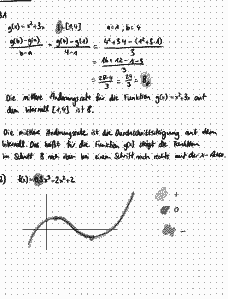 g(x) = x²+3x [1,4] a=1; b=4
g(b)-g(a) / b-a = g(4)-g(1) / 4-1 = 4²+3·4-(1²+3·1) / 3
= 16+12-1-3 / 3
= 28-4 / 3 = 24 / 3 = 8
Die mittlere Änderungsrate für die Funktion g(x)=x²+3x auf
dem Intervall [1,4] ist 8.
Die mittlere Änderungsrate ist die Durchschnittssteigung auf dem
Intervall. Das heißt für die Funktion g(x) steigt die
im Schnitt 8 mit der bei einem Schritt nach rechts auf der x-Achse.
x²+2
+
0
-